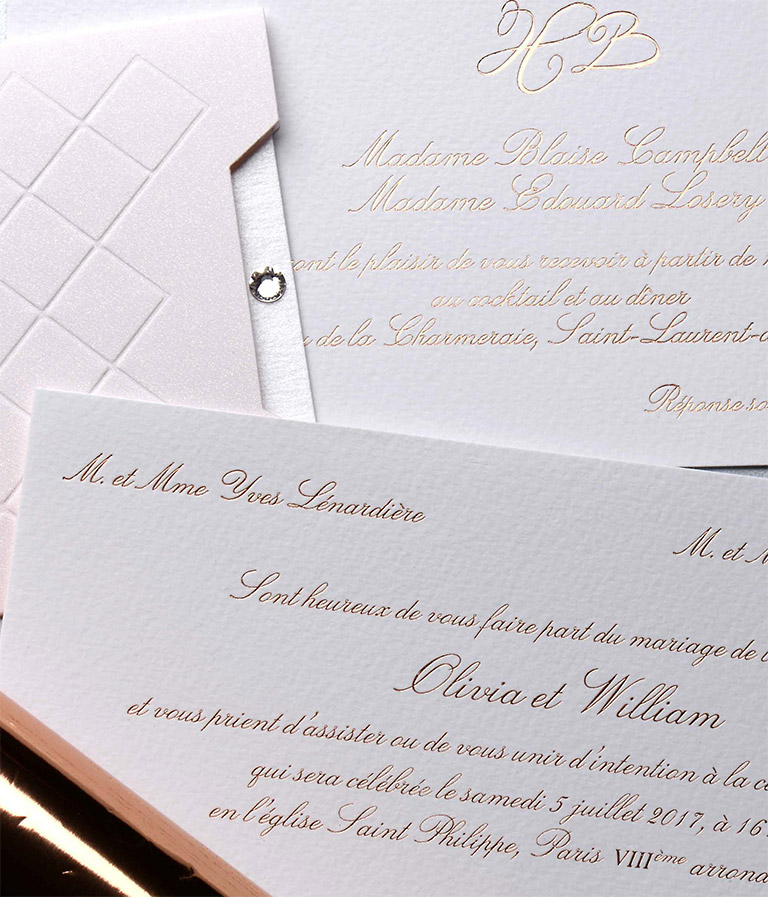 HB
Madame Blaise Campbell
Madame Edouard Losery
ont le plaisir de vous recevoir à partir de
au cocktail et au dîner
de la Charmeraie, Saint-Laurent-
Réponse
M. et Mme Yves Lénardière
M. et
Sont heureux de vous faire part du mariage de
Olivia et William
et vous prient d'assister ou de vous unir d'intention à la
qui sera célébrée le samedi 5 juillet 2017, à 16
en l'église Saint Philippe, Paris VIIIème